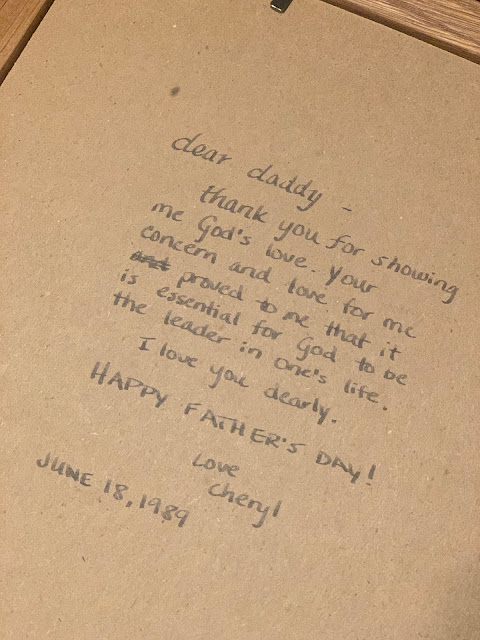 dear daddy -
thank you for showing
me God's love. Your
concern and love for me
proved to me that it
is essential for God to be
the leader in one's life.
I love you dearly.
HAPPY FATHER'S DAY!
Love
Cheryl
JUNE 18, 1989